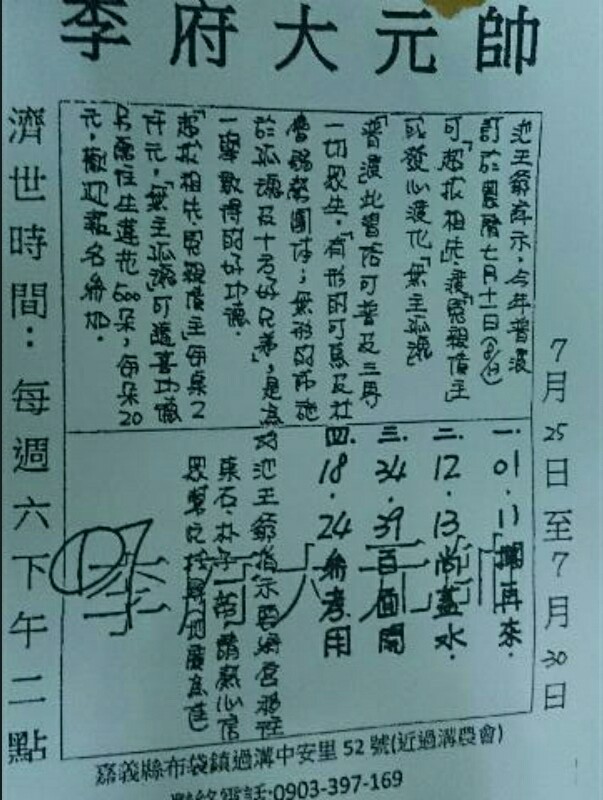 李府大元帥
7月25日至7月30日
池王爺府示,今年普渡
訂於農曆七月十一日
可「超拔祖先」渡「冤親債主」
或發心渡化「無主孤魂」
「普渡」此普恰可普及三界
一切眾生,「有形的可為及社
會弱勢團体;無形的布施
於孤魂及十方好兄弟」,是為
一舉數得的好功德.
「超拔祖先冤親債主」每桌2
仟元.「無主孤魂」可隨喜功德
另需往生蓮花500朵,每朵20
元.歡迎報名參加.
一.01.11攔再來.
二.12.13尚蓋水.
三.34.39百面開
四.18.24參考用
池王爺指示
李府大元帥
濟世時間:每週六下午二點
嘉義縣布袋鎮過溝中安里52號(近過溝農會)
聯絡電話:0903-397-169